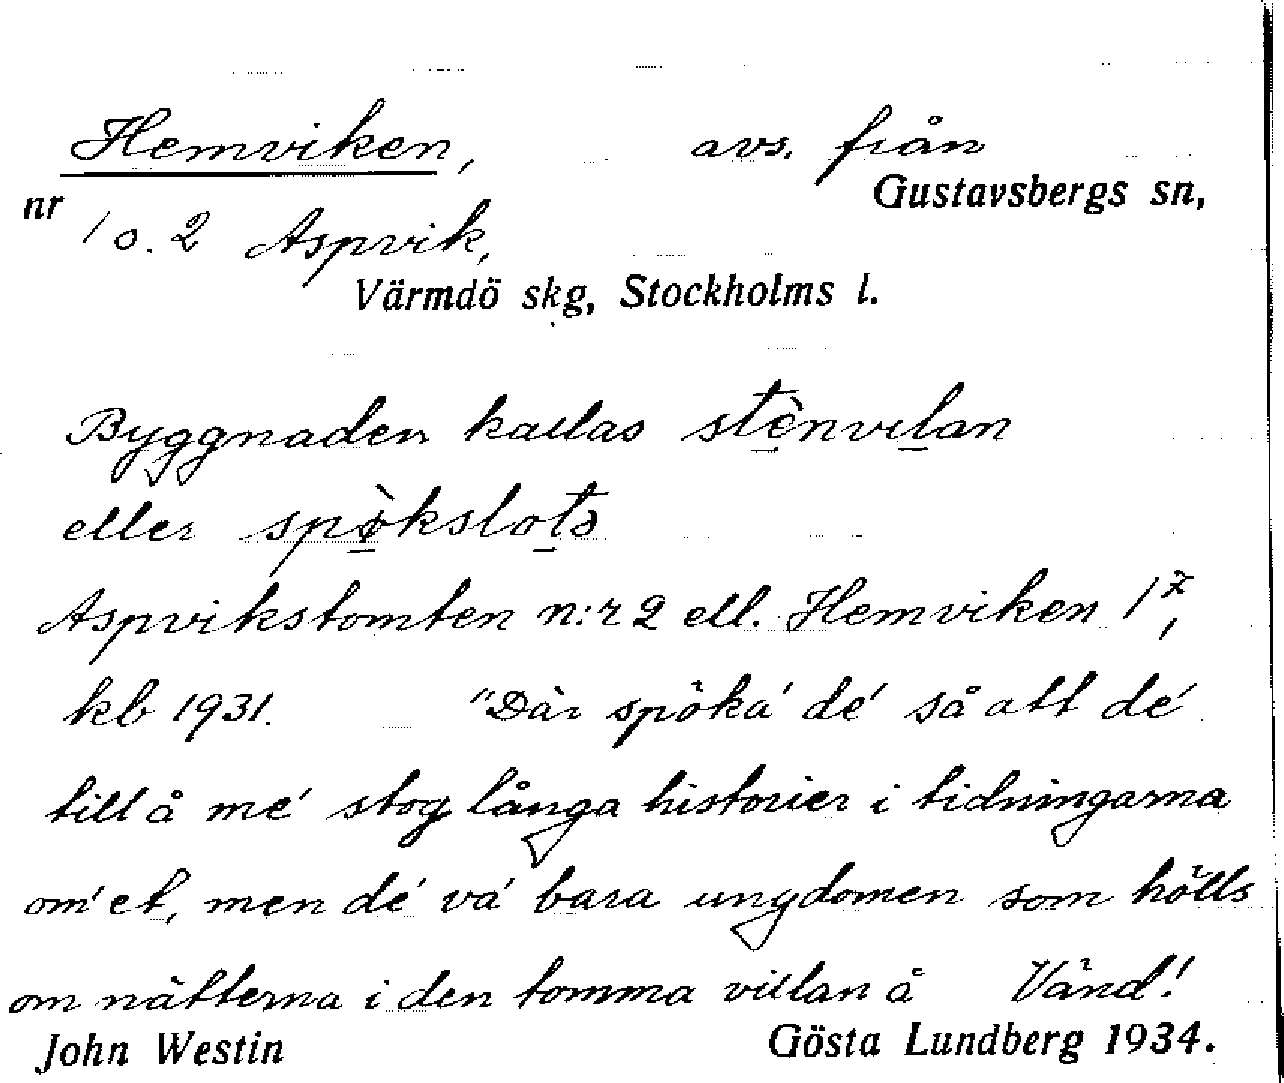 Hemviken, avs. från
Gustavsbergs sn,
nr 1 o. 2 Aspvik,
Värmdö skg, Stockholms l.
Byggnaden kallas stènvilan
eller spø̀kslotə
Aspvikstomten n:r 2 ell. Hemviken 1⁷,
kb 1931. "Där spöka' de' så att de'
till å me' stog långa historier i tidningarna
om'et, men de' va' bara ungdomen som hölls
om nätterna i den tomma villan å Vänd!
John Westin Gösta Lundberg 1934.